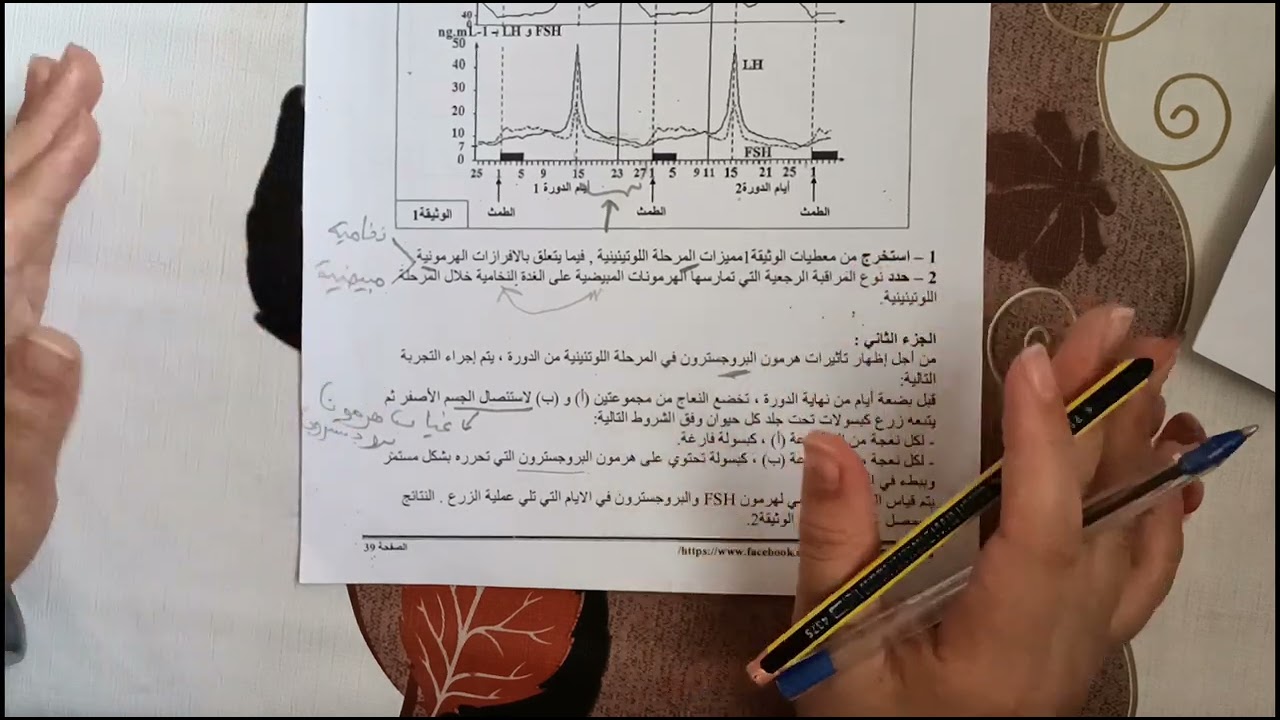 40
0
ng.mL-1 – LH و FSH
50
40
30
20
10
7
0
LH
FSH
25 1 5 9 15 23 27 1 5 9 11 15 21 25 1
أيام الدورة 1
أيام الدورة 2
الطمث
الطمث
الطمث
الوثيقة1
نخامية
مبيضية
1 – استخرج من معطيات الوثيقة1مميزات المرحلة اللوتينينية , فيما يتعلق بالافرازات الهرمونية
2 – حدد نوع المراقبة الرجعية التي تمارسها الهرمونات المبيضية على الغدة النخامية خلال المرحلة
اللوتينينية.
الجزء الثاني :
من أجل إظهار تأثيرات هرمون البروجسترون في المرحلة اللوتتينية من الدورة ، يتم إجراء التجربة
التالية:
قبل بضعة أيام من نهاية الدورة ، تخضع النعاج من مجموعتين (أ) و (ب) لاستتصال الجسم الأصفر ثم
يتبعه زرع كبسولات تحت جلد كل حيوان وفق الشروط التالية:
غياب هرمون
- لكل نعجة من (أ) ، كبسولة فارغة.
- لكل نعجة (ب) ، كبسولة تحتوي على هرمون البروجسترون التي تحرره بشكل مستمر
وببطء في
يتم قياس لهرمون FSH والبروجسترون في الايام التي تلي عملية الزرع . النتائج
الوثيقة2.
الصفحة 39
https://www.facebook.
4375